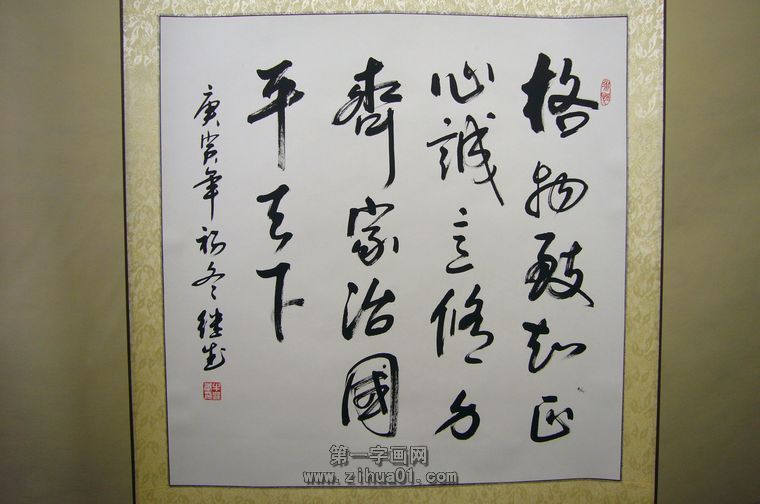 格物致知正
心誠意修身
齊家治國
平天下
庚寅年初冬继武
第一字画网
www.zihua01.com